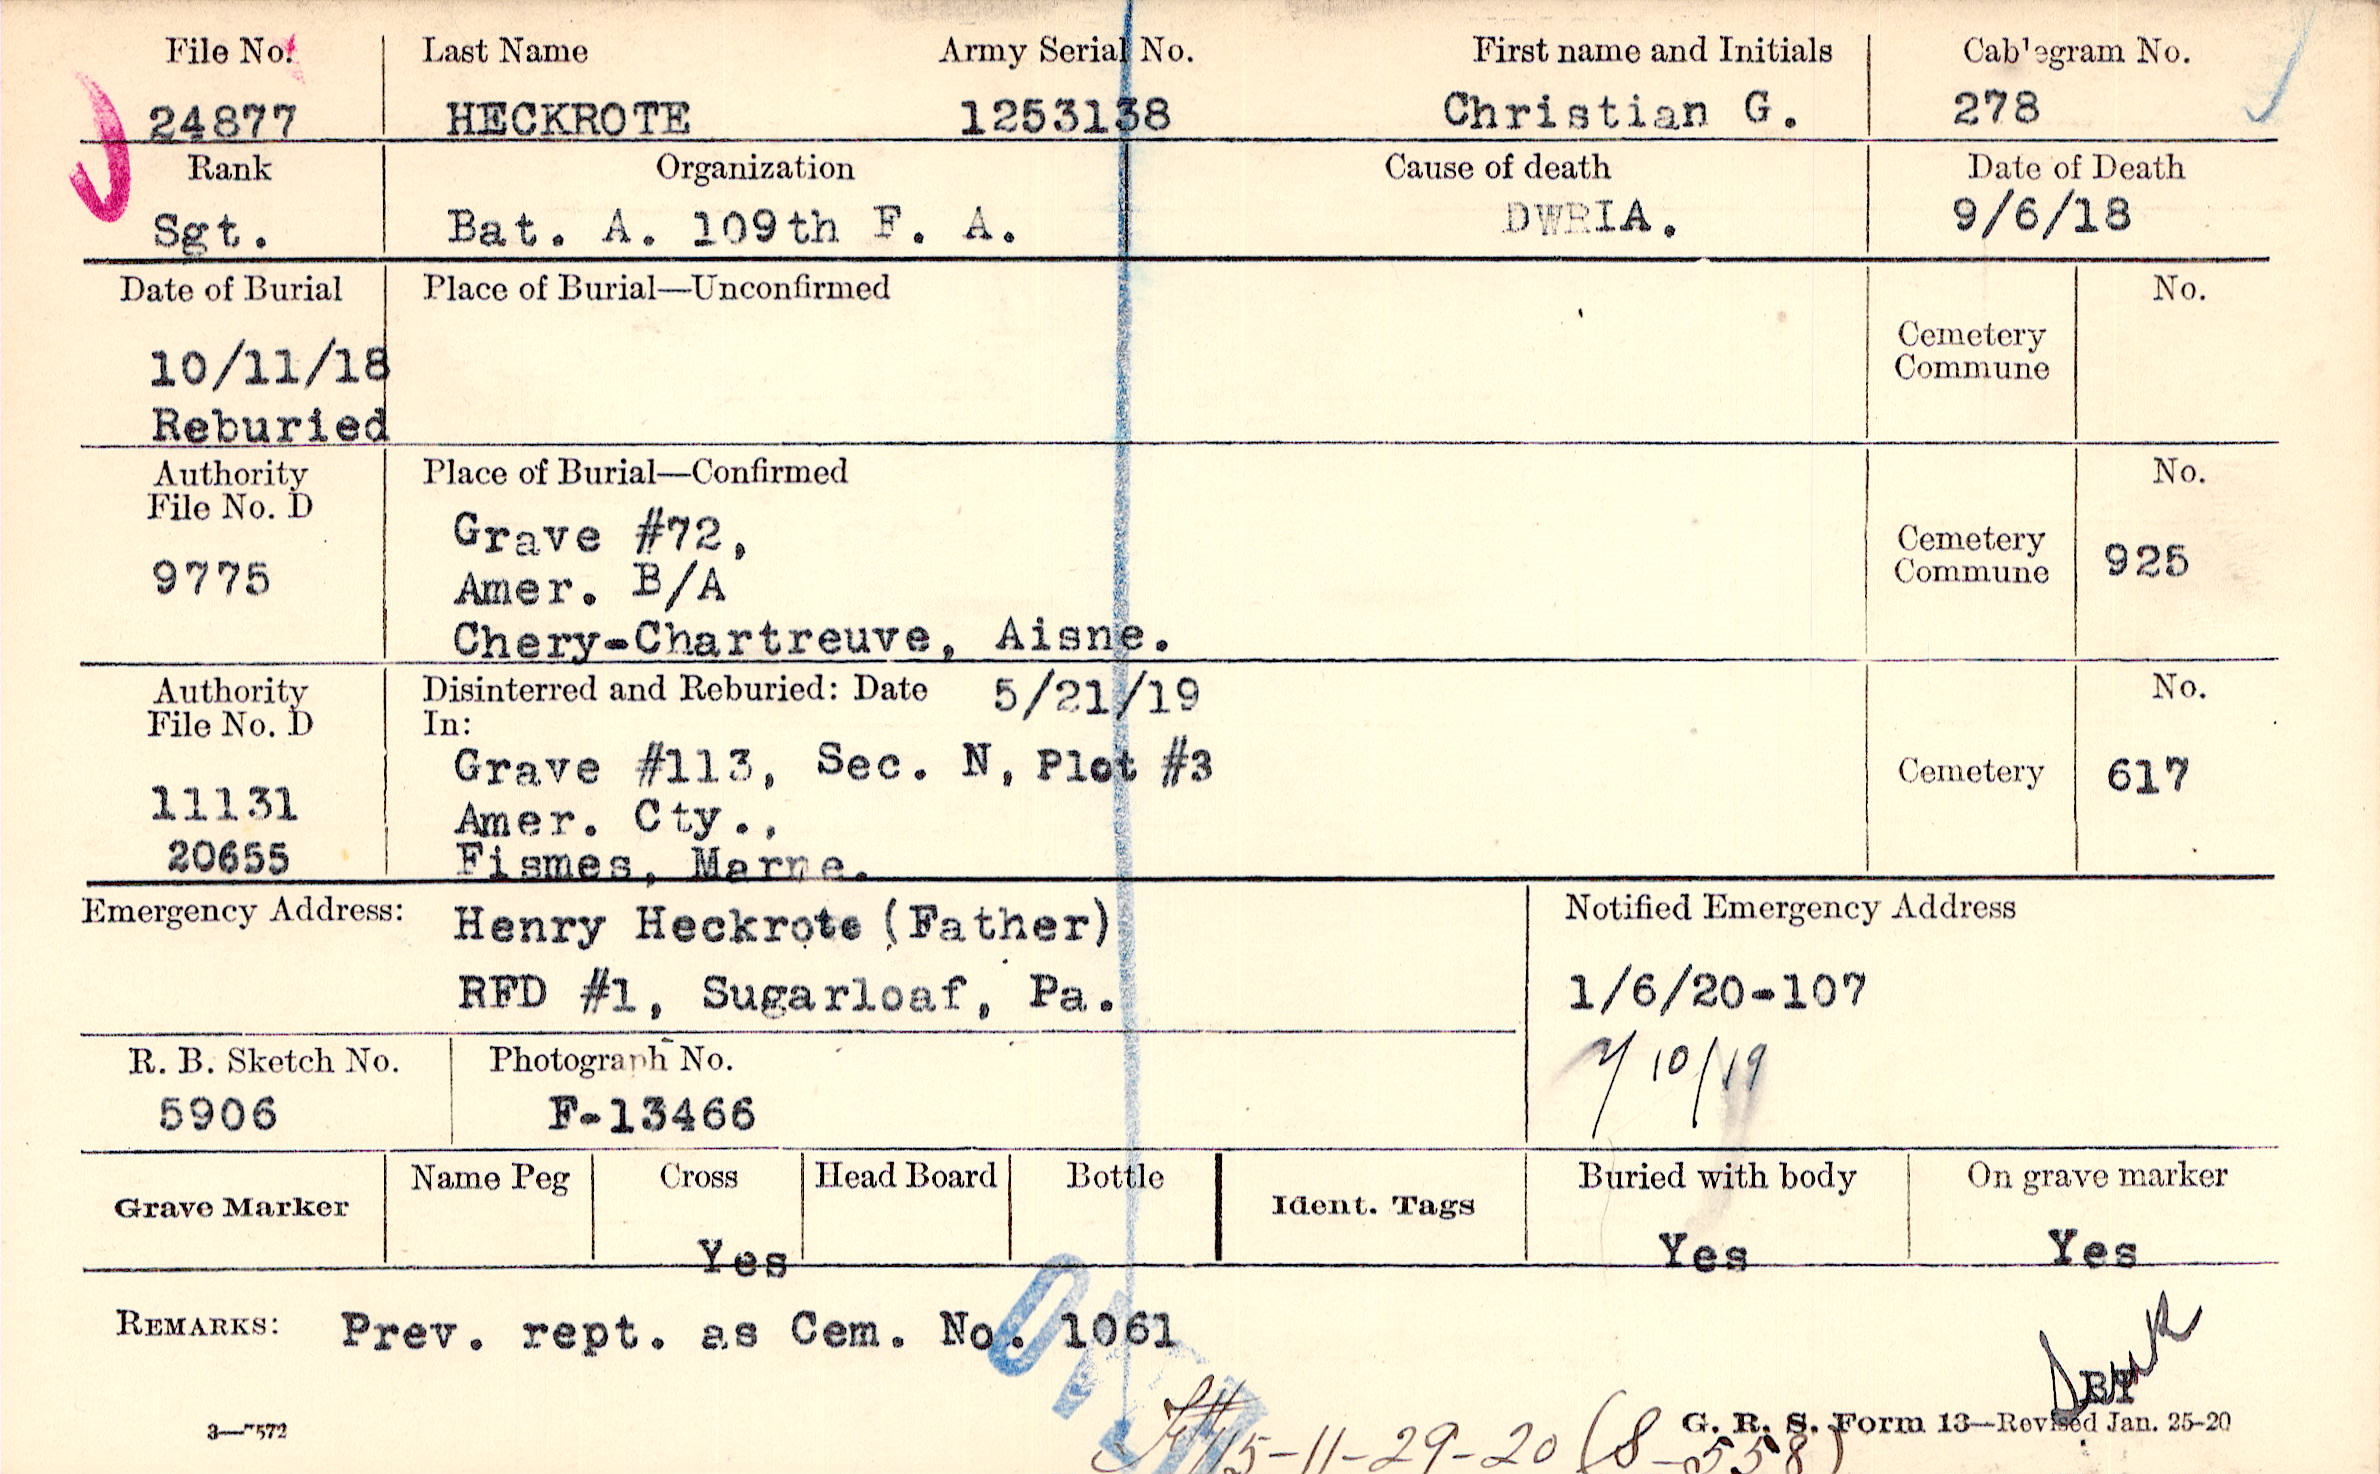 File No. Last Name Army Serial No. First name and Initials Cablegram No.
24877 HECKROTE 1253138 Christian G. 278
Rank Organization Cause of death Date of Death
Sgt. Bat. A. 109th F. A. DWRIA. 9/6/18
Date of Burial Place of Burial—Unconfirmed No.
Cemetery
Commune
10/11/18
Reburied
Authority Place of Burial—Confirmed No.
File No. D
Grave #72,
Cemetery
Commune 925
9775 Amer. B/A
Chery-Chartreuve, Aisne.
Authority Disinterred and Reburied: Date 5/21/19 No.
File No. D In:
Grave #113, Sec. N, Plot #3 Cemetery 617
11131 Amer. Cty.,
20655 Fismes, Marne.
Emergency Address: Henry Heckrote (Father) Notified Emergency Address
RFD #1, Sugarloaf, Pa. 1/6/20-107
R. B. Sketch No. Photograph No. 7/10/19
5906 F-13466
Grave Marker Name Peg Cross Head Board Bottle Ident. Tags Buried with body On grave marker
Yes Yes Yes
REMARKS: Prev. rept. as Cem. No. 1061
3—7572 G. R. S. Form 13—Revised Jan. 25-20
15-11-29-20 (8-558)